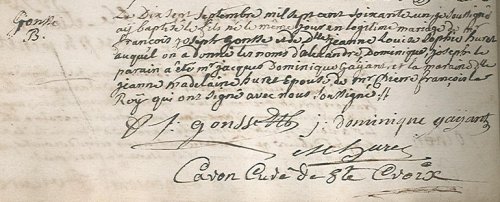 Gonsse
B.
Le Dix sept septembre mil sept cent soixante un je soussigné
ay baptisé le fils né le même jour en légitime mariage de Mr
françois joseph Gonsse et de dlle jeanne Louise Sophie huret
auquel on a donné les noms d'alexandre Dominique joseph. le
parain a été mr jacques Dominique Gayant et la maraine dlle
jeanne madelaine huret Epouse de mr Pierre françois le
Roy qui ont signé avec nous soussigné //
f: j: gonsse j. Dominique gayant
M huret
Cavon Curé de Ste Croix